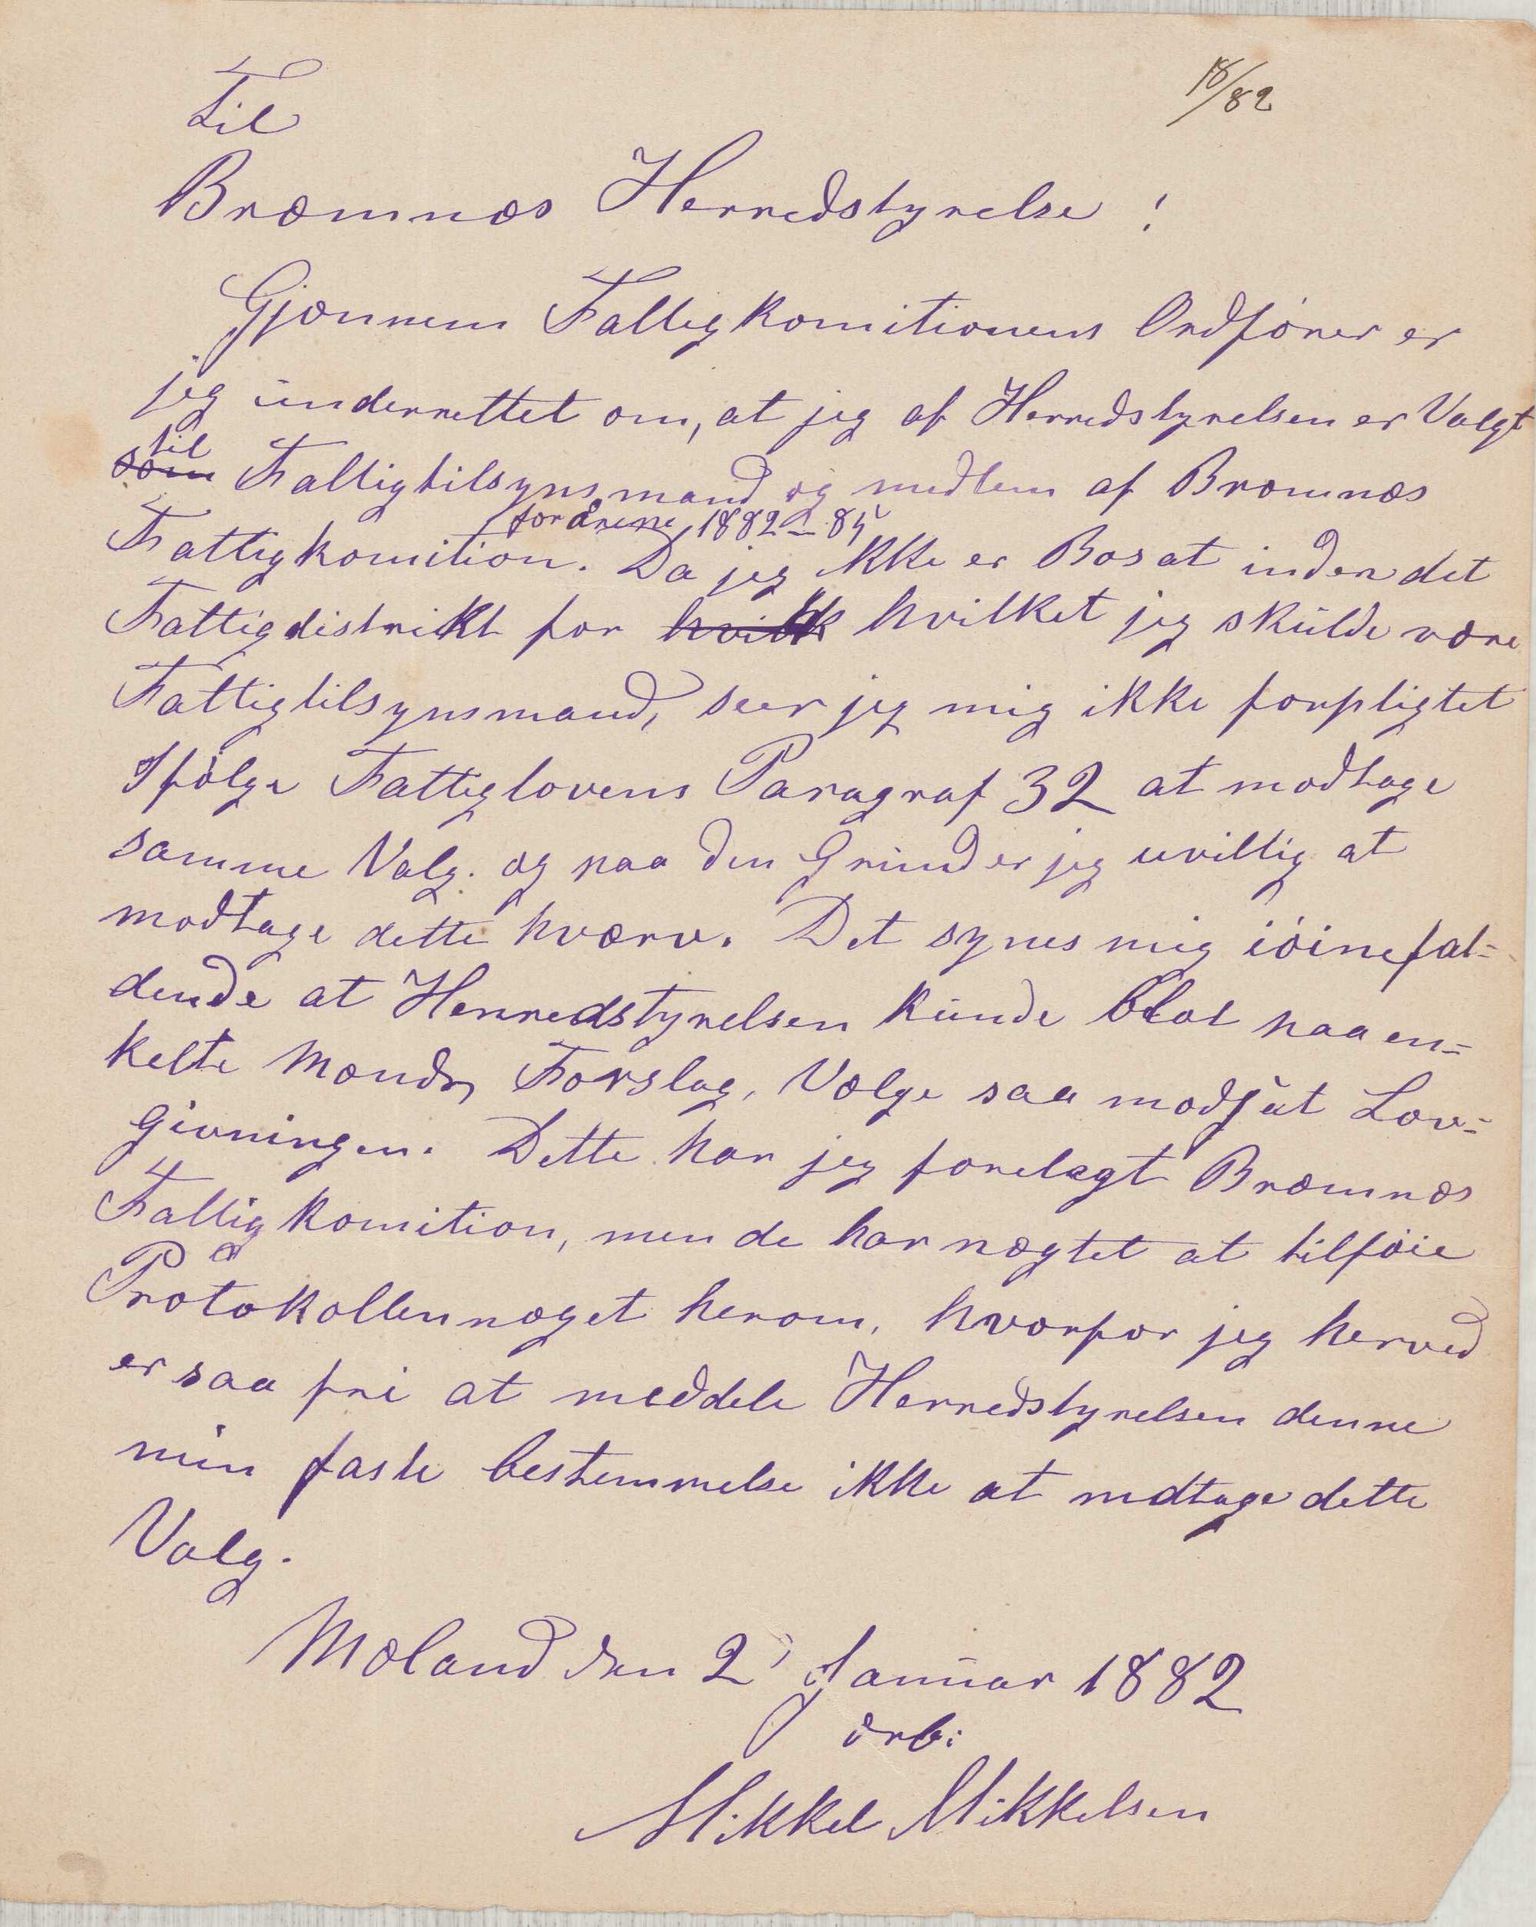 18/82
Til
Bræmnæs Herredstyrelse !
Gjænnem Fattigkomitionens Ordfører er
jeg underrettet om, at jeg af Herredstyrelsen er Valgt
til
som Fattigtilsynsmand og medlem af Bræmnæs
for årene 1882–85
Fattigkomition. Da jeg ikke er Bosat inden det
Fattigdistrikt for hvilk hvilket jeg skulde være
Fattigtilsynsmand, seer jeg mig ikke forpligtet
Ifølge Fattiglovens Paragraf 32 at modtage
samme Valg. og paa den Grund er jeg uvillig at
modtage dette hværv. Det synes mig iøinefal=
dende at Herredstyrelsen kunde blot paa en=
kelte Mænds Forslag, Vælge saa modsat Lov=
givningen. Dette har jeg forelagt Bræmnæs
Fattigkomition, men de har nægtet at tilføie
Protokollen noget herom, hvorfor jeg herved
er saa fri at meddele Herredstyrelsen denne
min faste bestemmelse ikke at mdtage dette
Valg.
Mæland den 2 Januar 1882
ærb:
Mikkel Mikkelsen